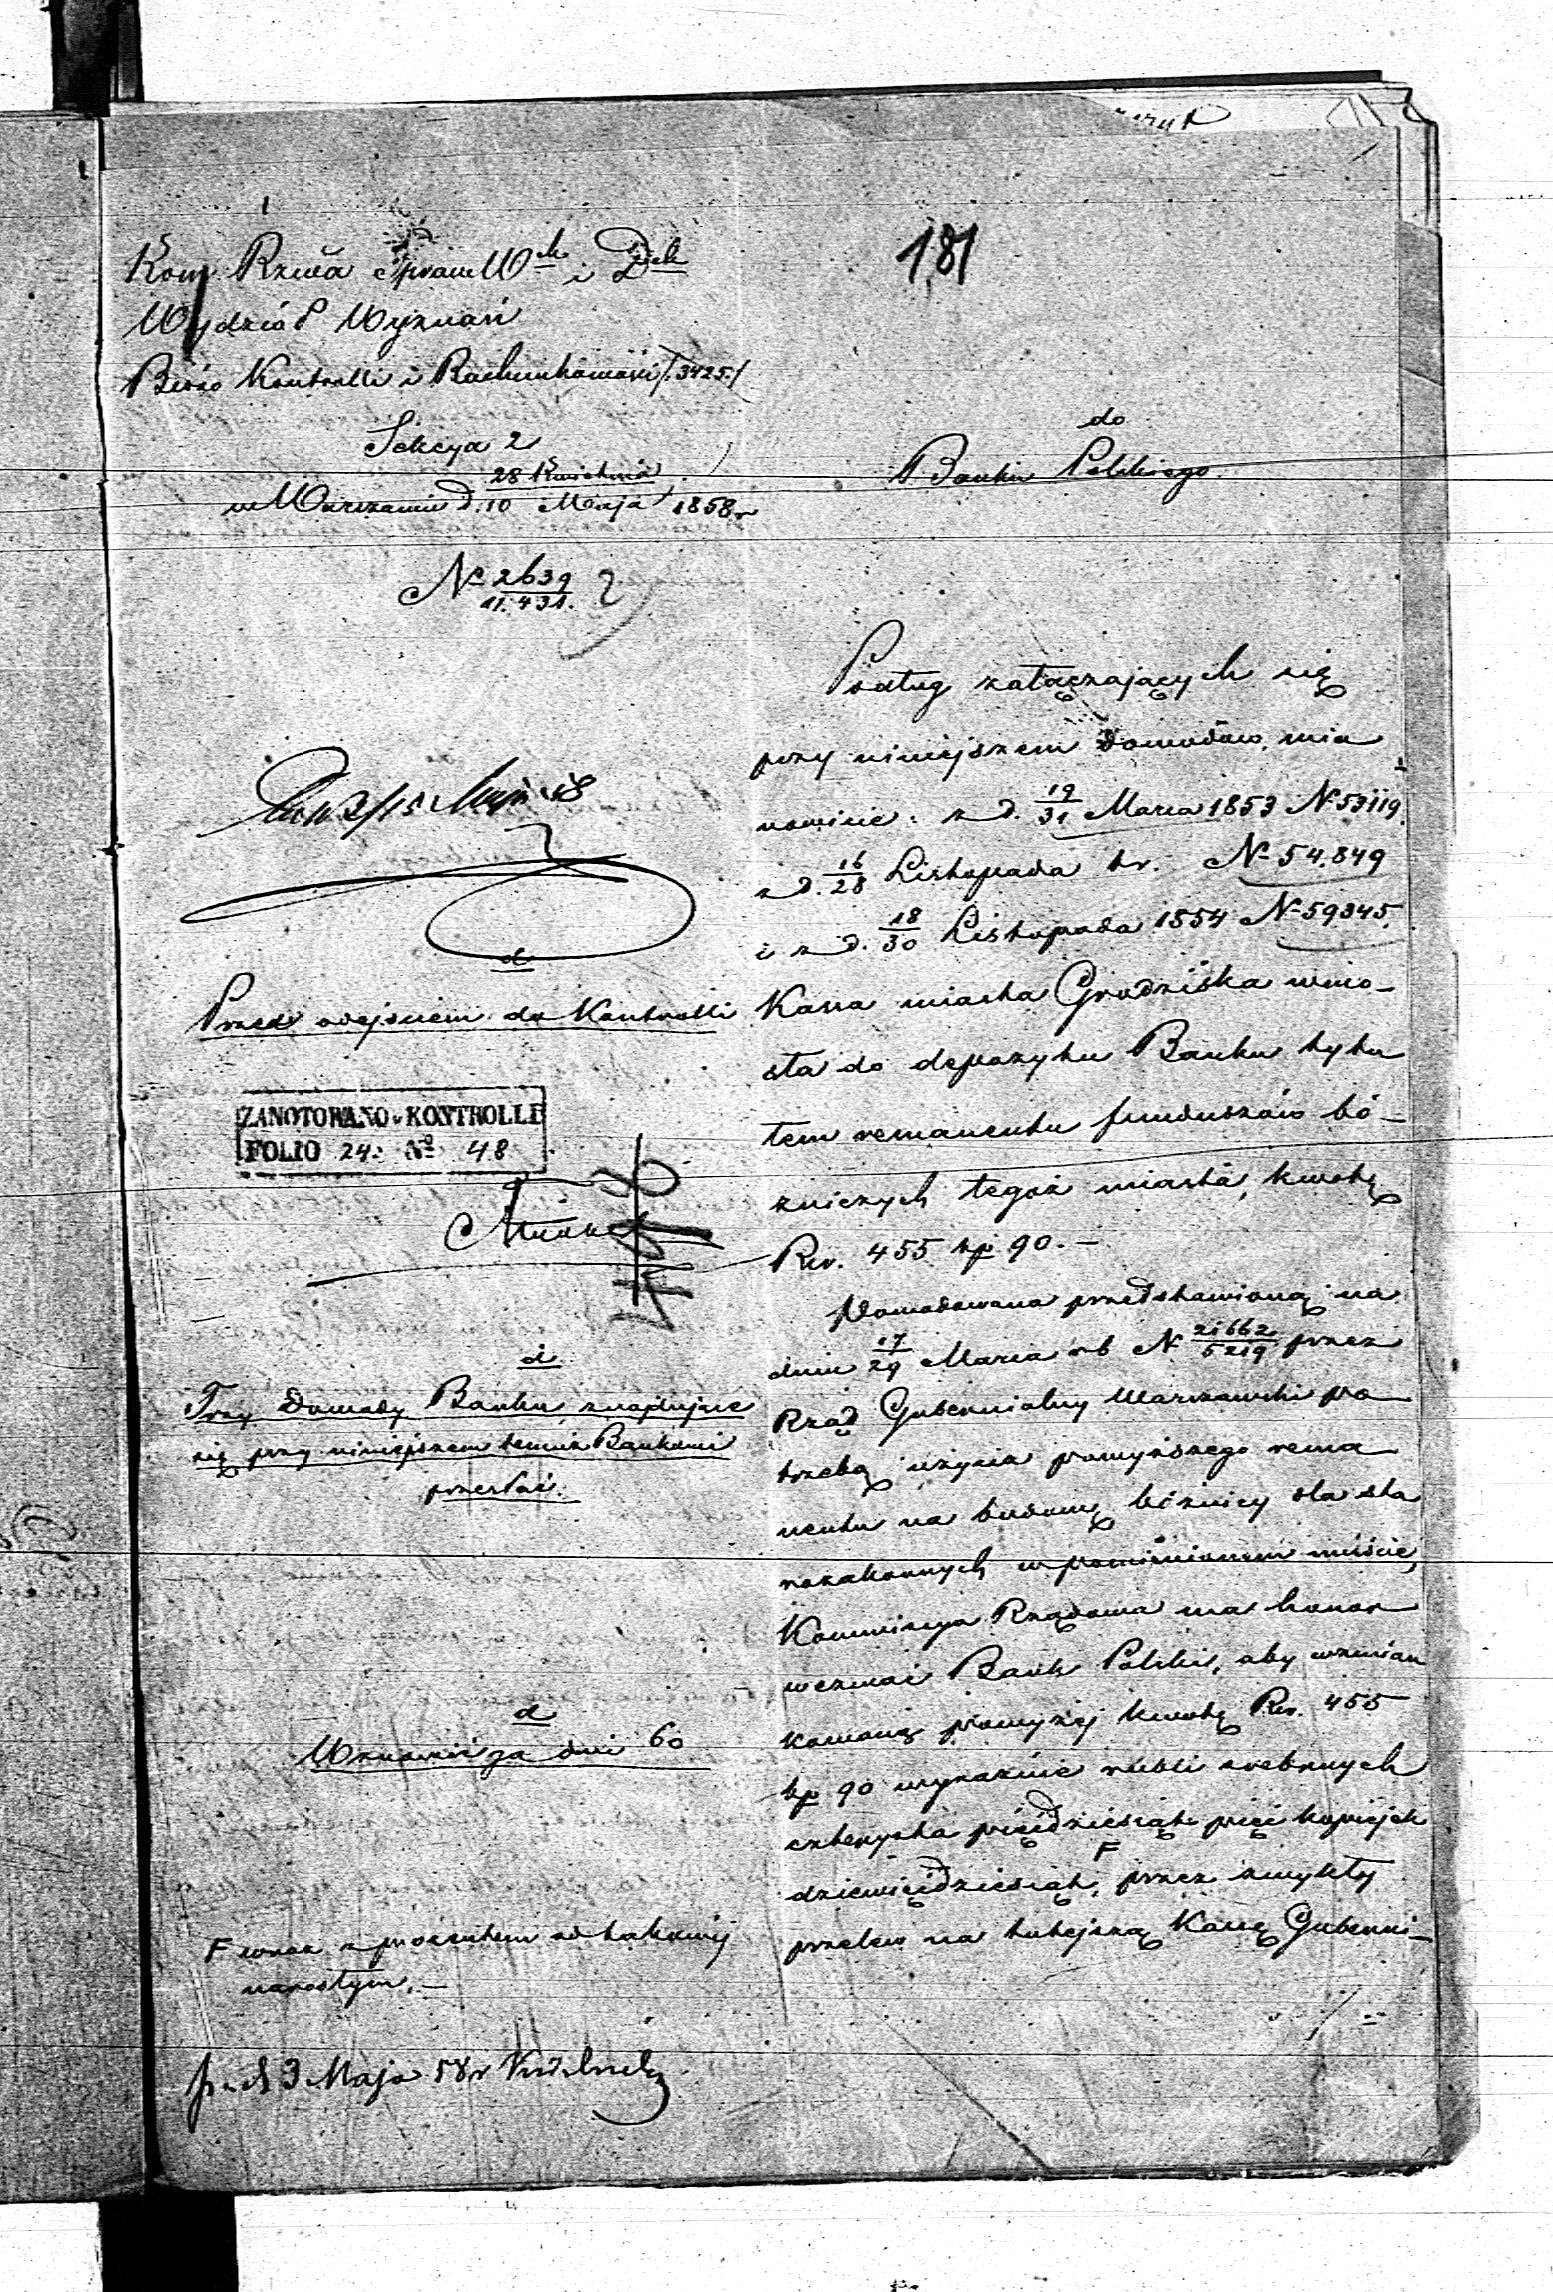 181
Kom Rzwa Spraw Wch i Dch
Wydział Wyznań
Bióro Kontrolli i Rachunkowości /:3425:/
Sekcya 2
w Warszawie d. 28 Kwietnia / 10 Maja 1858 r
N 2639 / 11.431.
do
Banku Polskiego
Podług załączających się
przy niniejszem dowodów, mia
nowicie: z d. 19/31 Marca 1853 N 53119.
z d. 16/28 Listopada tr. N 54,849
i z d. 18/30 Listopada 1854 N 59345,
Kassa miasta Grodziska wnio-
sła do depozytu Banku tytu
łem remanentu funduszów bó-
żniczych tegoż miasta, kwotę
Rsr. 455 kp 90.-
Powodowana przedstawioną na
dniu 17/29 Marca rb N 21662/5219 przez
Rząd Gubernialny Warszawski po
trzebą użycia powyższego rema
nentu na budowę bóżnicy dla sta
rozakonnych w pomienionem mieście,
Kommissya Rządowa ma honor
wezwać Bank Polski, aby wzmian
kowaną powyżej kwotę Rsr. 455
kp 90 wyraźnie rubli srebrnych
czterysta pięćdziesiąt pięć kopiejek
dziewięćdziesiąt, F przez zwykły
przelew na tutejszą Kassę Guberni-
d
Przed odejściem do Kontrolli
ZANOTOWANO w KONTROLLI
FOLIO 24. No 48
d
Trzy dowody Banku znajdujące
się przy niniejszem temuż Bankowi
przesłać.
d
Wznowić za dni 60
F wraz z procentem od takowej
narosłym.-
3 Maja 58 r